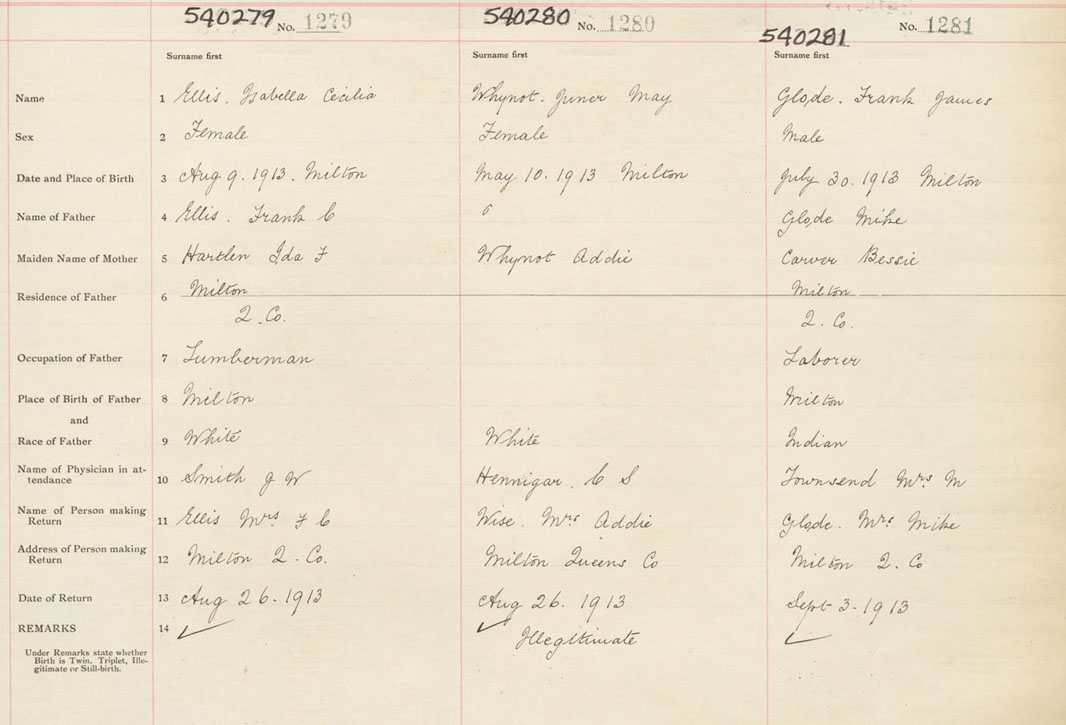 540279 No. 1279 540280 No. 1280 540281 No. 1281
Surname first Surname first Surname first
Name 1 Ellis. Isabella Cecilia Whynot. Juner May Glode. Frank James
Sex 2 Female Female Male
Date and Place of Birth 3 Aug 9. 1913. Milton May 10. 1913 Milton July 30. 1913 Milton
Name of Father 4 Ellis. Frank C Glode Mike
Maiden Name of Mother 5 Hartlen Ida F Whynot Addie Carver Bessie
Residence of Father 6 Milton Milton
Q. Co. Q. Co.
Occupation of Father 7 Lumberman Laborer
Place of Birth of Father 8 Milton Milton
and
Race of Father 9 White White Indian
Name of Physician in at-
tendance 10 Smith J W Hennigar. C S Townsend Mrs M
Name of Person making
Return 11 Ellis Mrs F C Wise. Mrs Addie Glode. Mrs Mike
Address of Person making
Return 12 Milton Q. Co. Milton Queens Co Milton Q. Co
Date of Return 13 Aug 26. 1913 Aug 26. 1913 Sept 3. 1913
REMARKS 14 ✓ ✓ Illegitimate ✓
Under Remarks state whether
Birth is Twin. Triplet, Ille-
gitimate or Still-birth.